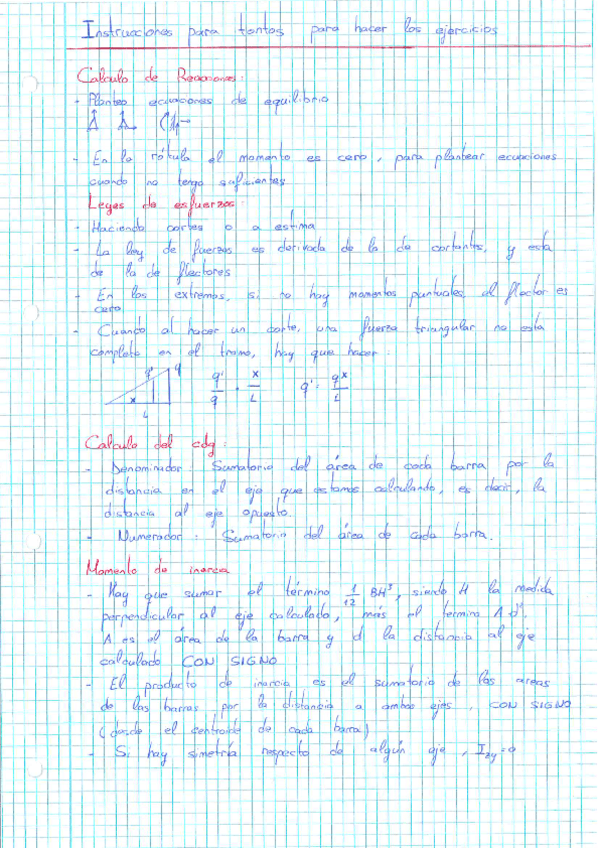 Instrucciones para tontos para hacer los ejercicios
Calculo de Reacciones:
- Planteo ecuaciones de equilibrio
- En la rótula el momento es cero, para plantear ecuaciones
cuando no tengo suficientes
Leyes de esfuerzos:
- Haciendo cortes o a estima
- La ley de fuerzas es derivada de la de cortantes, y esta
de la de flectores
- En los extremos, si no hay momentos puntuales, el flector es
cero
- Cuando al hacer un corte, una fuerza triangular no esta
completa en el tramo, hay que hacer:
q' q
x
L
q'/q = x/L q' = qx/L
Calculo del cdg:
- Denominador: Sumatorio del área de cada barra por la
distancia en el eje que estamos calculando, es decir, la
distancia al eje opuesto.
- Numerador: Sumatorio del área de cada barra.
Momento de inercia
- Hay que sumar el término 1/12 BH³, siendo H la medida
perpendicular al eje calculado, más el termino A d².
A es el área de la barra y d la distancia al eje
calculado CON SIGNO
- El producto de inercia es el sumatorio de las areas
de las barras por la distancia a ambos ejes, CON SIGNO
(desde el centroide de cada barra)
- Si hay simetría respecto de algún eje, Izy = 0